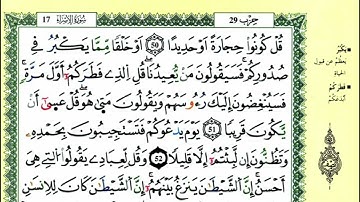 حِزْب 29
سُورَةُ الْإِسْرَاءِ 17
قُلْ كُونُوا حِجَارَةً اَوْ حَدِيدًا 50 اَوْ خَلْقًا مِّمَّا يَكْبُرُ فِي
صُدُورِكُمْ فَسَيَقُولُونَ مَنْ يُّعِيدُنَا قُلِ اِلذِي فَطَرَكُمُ أَوَّلَ مَرَّةٍ
فَسَيُنْغِضُونَ إِلَيْكَ رُءُوسَهُمْ وَيَقُولُونَ مَتَى هُوَ قُلْ عَسَى أَنْ
يَّكُونَ قَرِيبًا 51 يَوْمَ يَدْعُوكُمْ فَتَسْتَجِيبُونَ بِحَمْدِهِ
وَتَظُنُّونَ إِن لَّبِثْتُمُ إِلَّا قَلِيلًا 52 وَقُل لِّعِبَادِي يَقُولُوا اُلتِي هِيَ
أَحْسَنُ إِنَّ اَلشَّيْطَانَ يَنزَغُ بَيْنَهُمُ إِنَّ اَلشَّيْطَانَ كَانَ لِلْإِنسَانِ
يَكْبُرُ
يعظم عن قبول
الحياة
فَطَرَكُمْ
أبدعكم